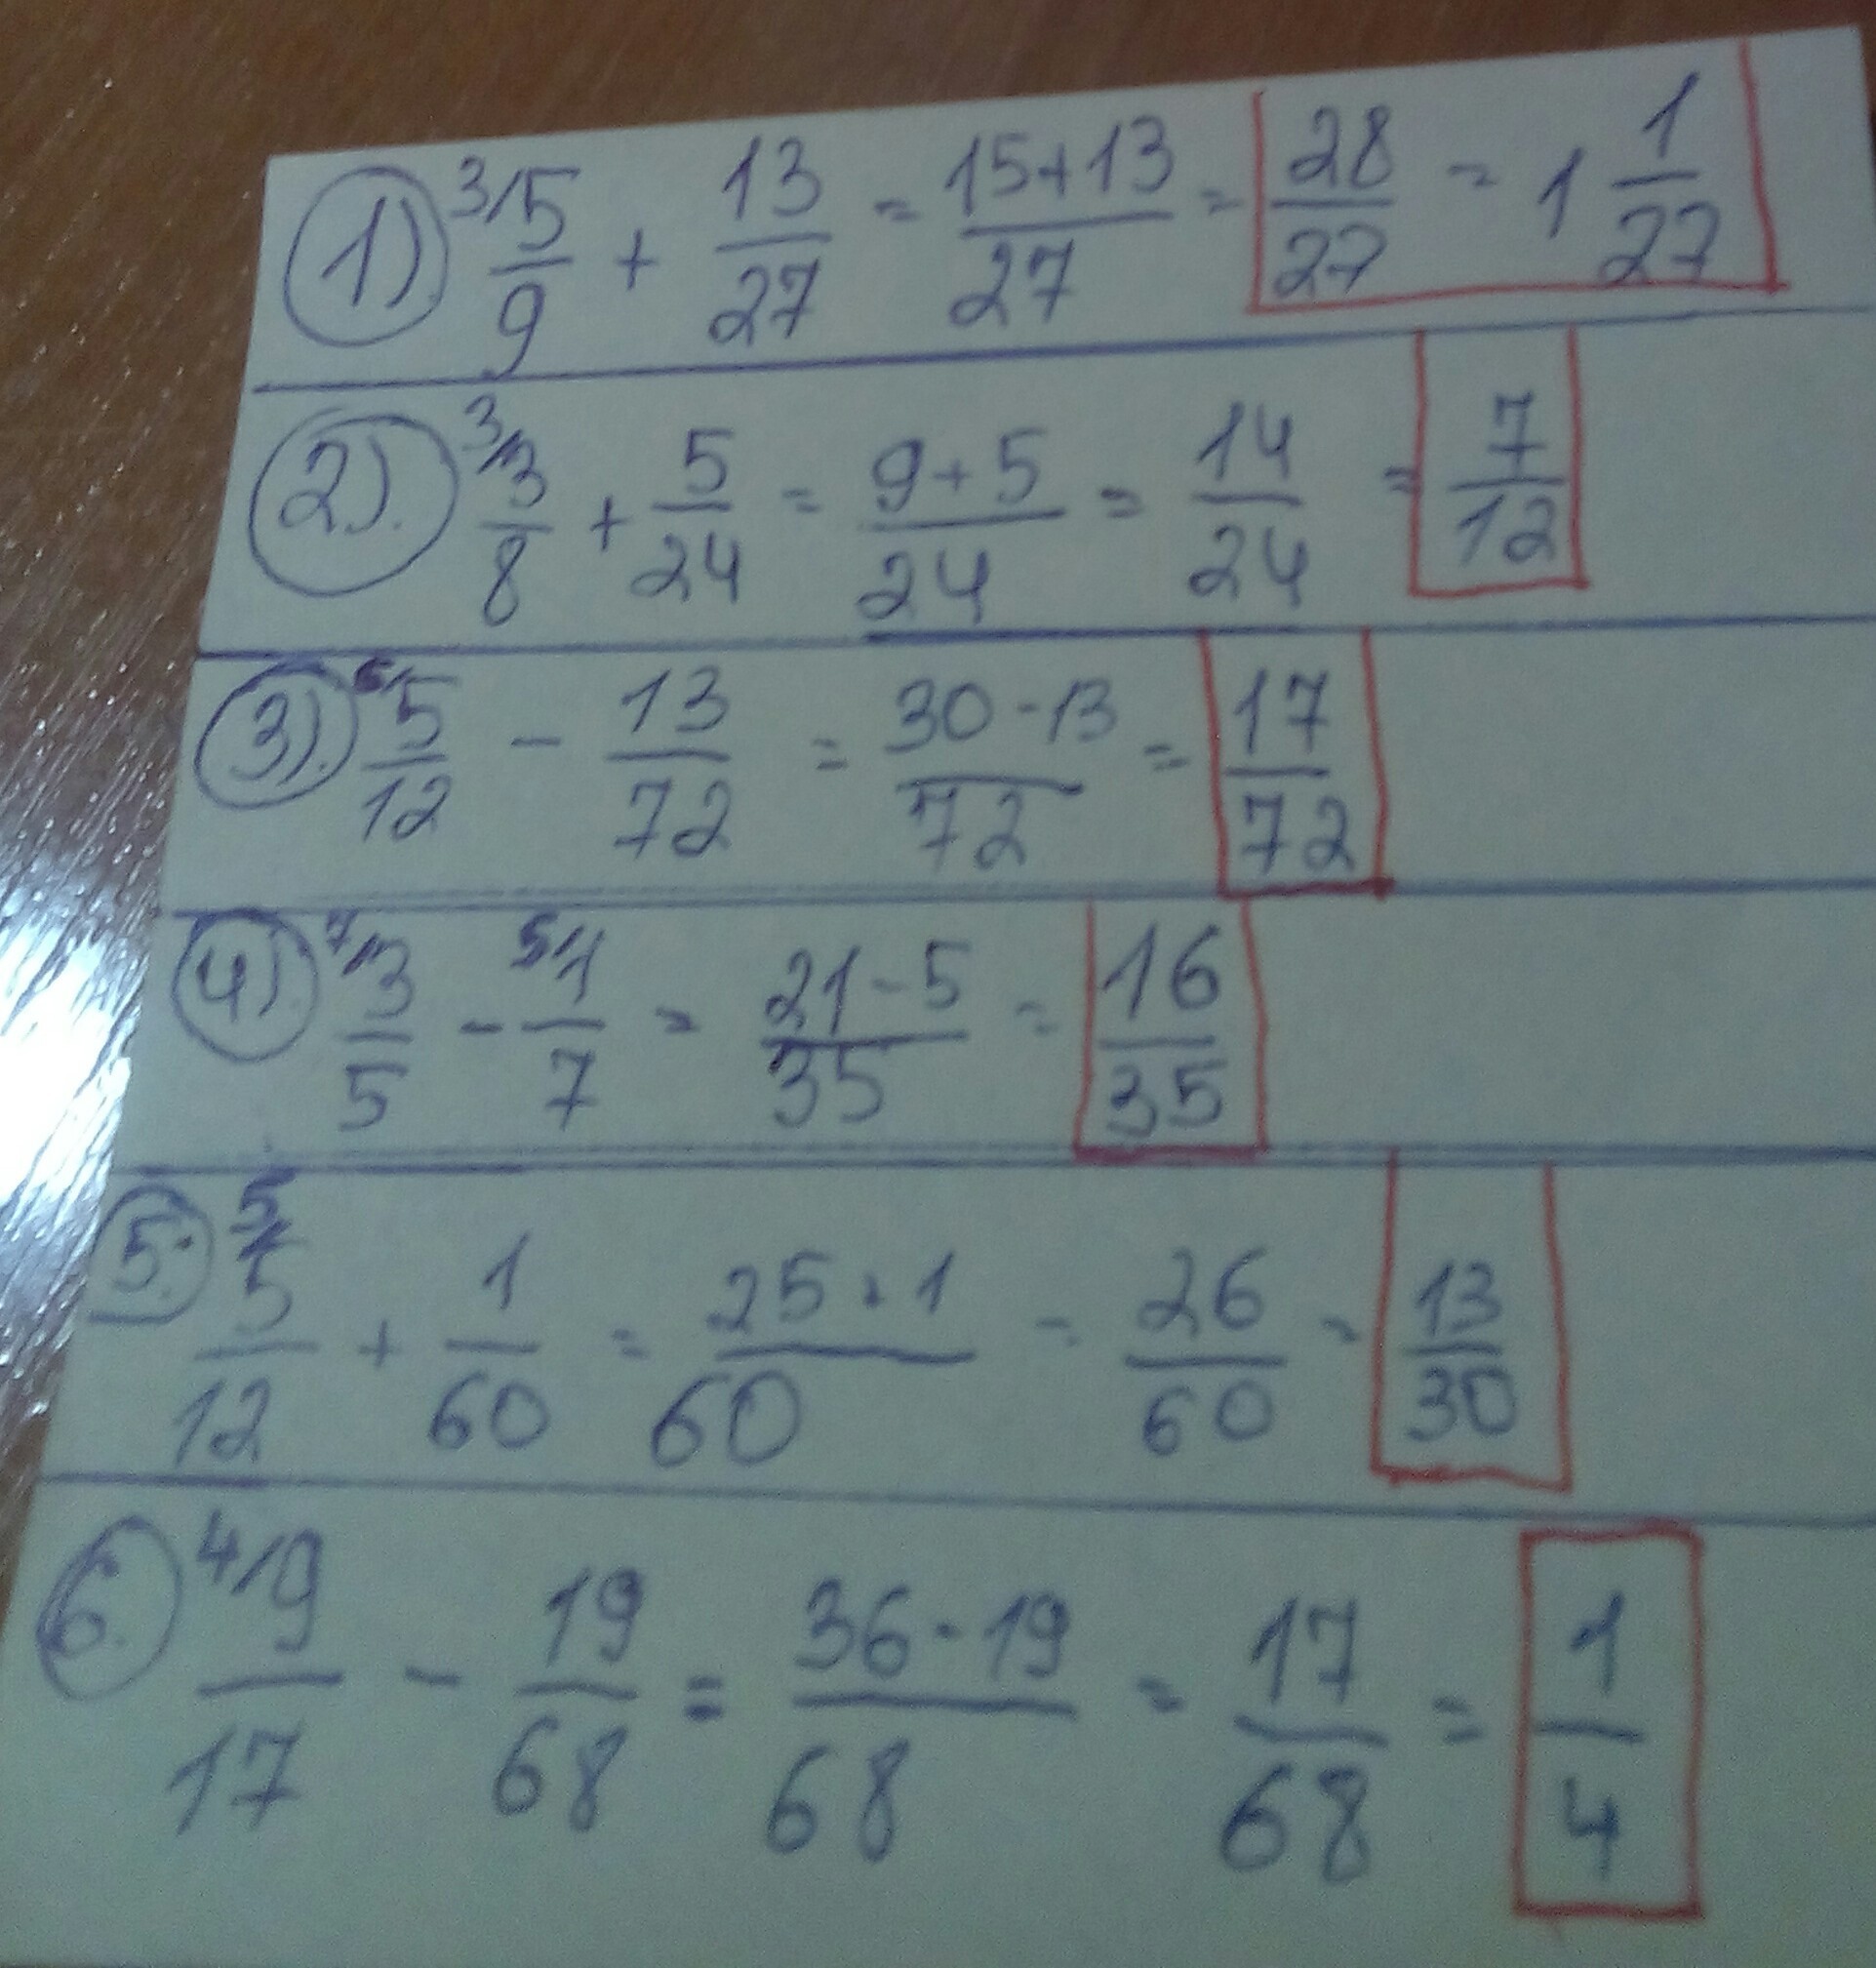 1) 3/5/9 + 13/27 = 15+13/27 = 28/27 = 1 1/27
2). 3/3/8 + 5/24 = 9+5/24 = 14/24 = 7/12
3). 6/5/12 - 13/72 = 30-13/72 = 17/72
4). 7/3/5 - 5/1/7 = 21-5/35 = 16/35
5. 5/5/12 + 1/60 = 25+1/60 = 26/60 = 13/30
6. 4/9/17 - 19/68 = 36-19/68 = 17/68 = 1/4